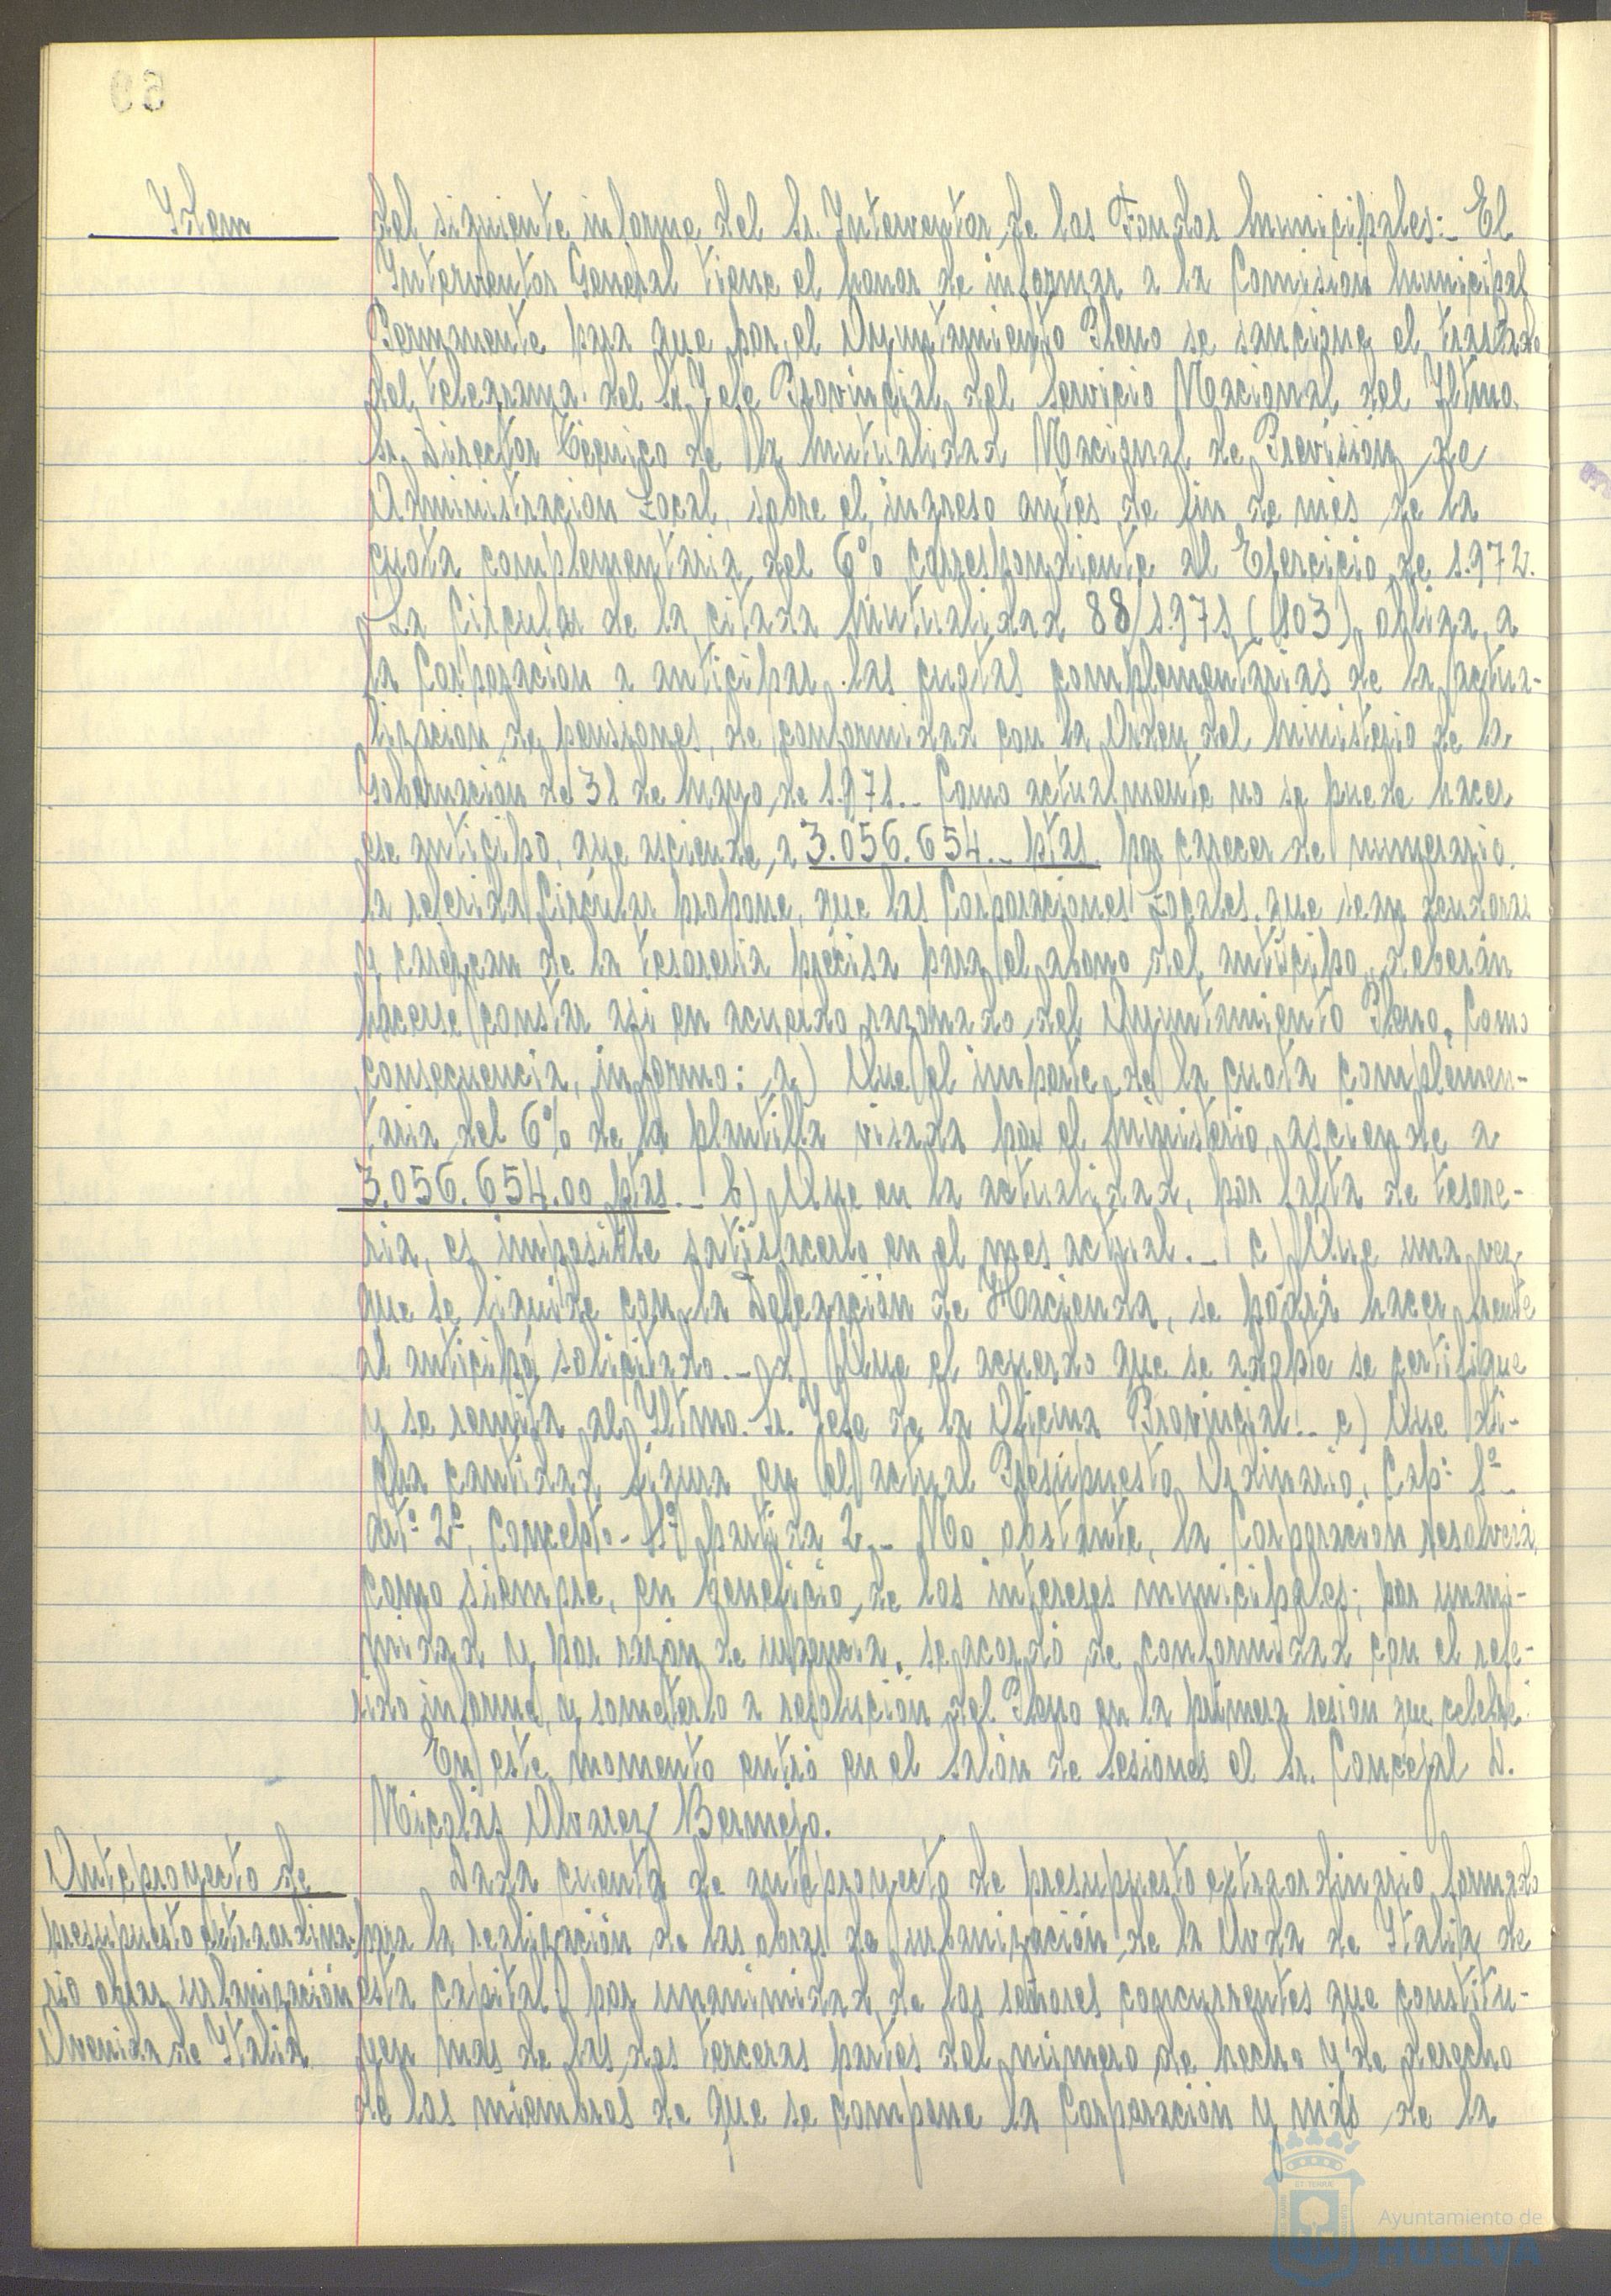 Idem
del siguiente informe del Sr. Interventor de los Fondos Municipales:- El
Interventor General tiene el honor de informar a la Comisión Municipal
Permanente para que por el Ayuntamiento Pleno se sancione el traslado
del telegrama del Sr. Jefe Provincial del Servicio Nacional del Iltmo.
Sr. Director Técnico de la Mutualidad Nacional de Previsión de
Administración Local, sobre el ingreso antes de fin de mes de la
cuota complementaria del 6% correspondiente al Ejercicio de 1.972.
La Circular de la citada Mutualidad 88/1.971 (103), obliga a
la Corporación a anticipar las cuotas complementarias de la actua-
lización de pensiones, de conformidad con la Orden del Ministerio de la
Gobernación de 31 de Mayo de 1.971.- Como actualmente no se puede hacer
ese anticipo, que asciende a 3.056.654.- ptas. por carecer de numerario.
la referida Circular propone, que las Corporaciones Locales que sean deudoras
y carezcan de la tesorería precisa para el abono del anticipo, deberán
hacerse constar así en acuerdo razonado del Ayuntamiento Pleno. Como
consecuencia, informo: a) Que el importe de la cuota complemen-
taria del 6% de la plantilla visada por el Ministerio, asciende a
3.056.654.00 ptas.- b) Que en la actualidad, por falta de tesore-
ría, es imposible satisfacerlo en el mes actual.- c) Que una vez
que se liquide con la Delegación de Hacienda, se podrá hacer frente
al anticipo solicitado.- d) Que el acuerdo que se adopte se certifique
y se remita al Iltmo. Sr. Jefe de la Oficina Provincial.- e) Que di-
cha cantidad figura en el actual Presupuesto Ordinario, Cap: 1º-
artº 2º, Concepto- 1º, partida 2.- No obstante, la Corporación resolverá,
como siempre, en beneficio de los intereses municipales; por unani-
midad y por razón de urgencia, se acordó de conformidad con el refe-
rido informe, y someterlo a resolución del Pleno en la primera sesión que celebre.
En este momento entró en el Salón de Sesiones el Sr. Concejal D.
Nicolás Alvarez Bermejo.
Anteproyecto de
presupuesto extraordina-
rio obras urbanización
Avenida de Italia
Dada cuenta de anteproyecto de presupuesto extraordinario formado
para la realización de las obras de urbanización de la Avda de Italia de
esta capital, por unanimidad de los señores concurrentes que constitu-
yen más de las dos terceras partes del número de hecho y de derecho
de los miembros de que se compone la Corporación y más de la
Ayuntamiento de
HUELVA